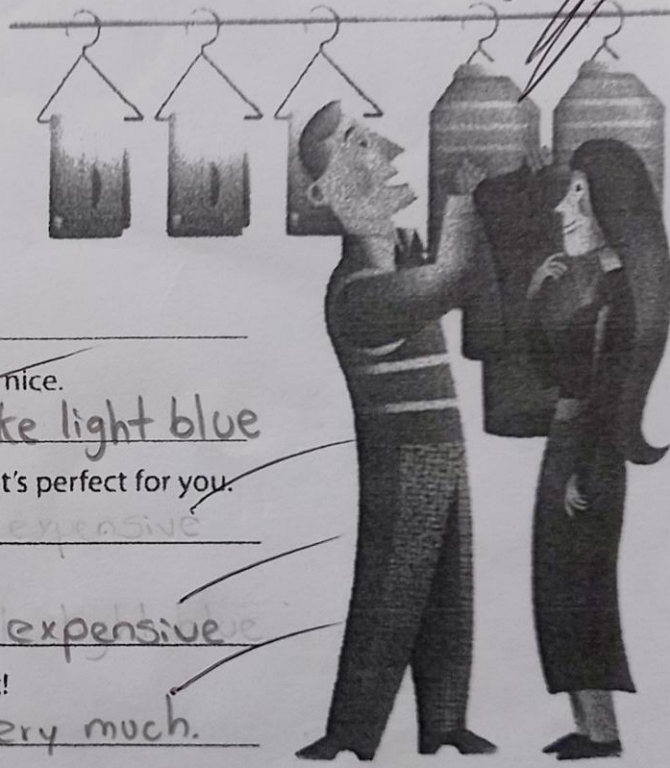 nice.
ke light blue
t's perfect for you.
expensive
expensive
!
ery much.